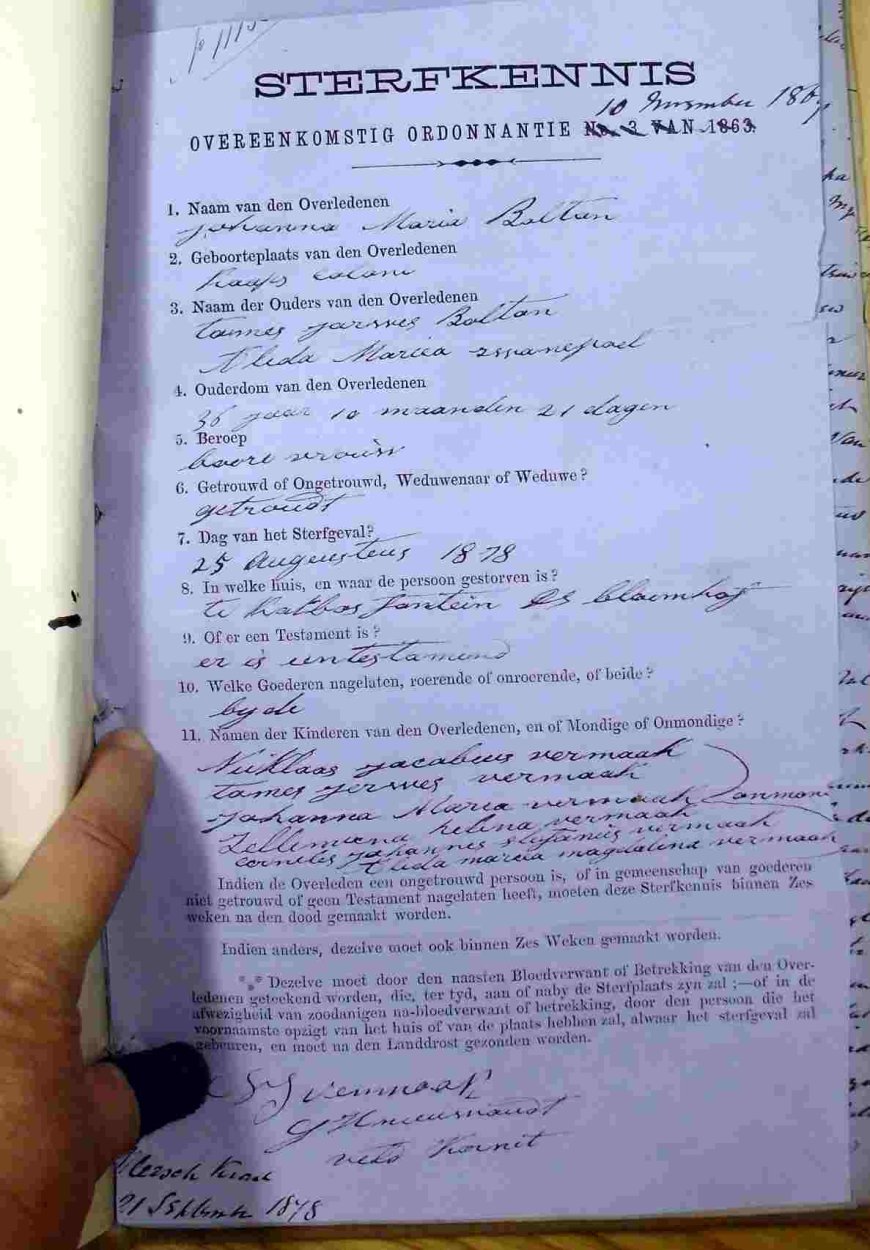 No 1113
STERFKENNIS
10 November 186
OVEREENKOMSTIG ORDONNANTIE No. 3 VAN 1863.
1. Naam van den Overledenen
Johanna Maria Boltan
2. Geboorteplaats van den Overledenen
Kaaps coloni
3. Naam der Ouders van den Overledenen
tames Jarvves Boltan
Aleda Marica zwanepoel
4. Ouderdom van den Overledenen
36 jaar 10 maanden 21 dagen
5. Beroep
boere vrouw
6. Getrouwd of Ongetrouwd, Weduwenaar of Weduwe?
getroudt
7. Dag van het Sterfgeval?
25 Augustus 1878
8. In welke huis, en waar de persoon gestorven is?
te fontein bloemhof
9. Of er een Testament is?
er is een testamend
10. Welke Goederen nagelaten, roerende of onroerende, of beide?
byde
11. Namen der Kinderen van den Overledenen, en of Mondige of Onmondige?
Niklaas Jacobus vermaak
tames Jerves vermaak
Johanna Maria vermaak onmon
helina vermaak
cornelis Johannes stefanus vermaak
Aleda marica magdalina vermaak
Indien de Overleden een ongetrouwd persoon is, of in gemeenschap van goederen
niet getrouwd of geen Testament nagelaten heeft, moeten deze Sterfkennis binnen Zes
weken na den dood gemaakt worden.
Indien anders, dezelve moet ook binnen Zes Weken gemaakt worden.
*** Dezelve moet door den naasten Bloedverwant of Betrekking van den Over-
ledenen geteekend worden, die, ter tyd, aan of naby de Sterfplaats zyn zal ;—of in de
afwezigheid van zoodanigen na-bloedverwant of betrekking, door den persoon die het
voornaamste opzigt van het huis of van de plaats hebben zal, alwaar het sterfgeval zal
gebeuren, en moet na den Landdrost gezonden worden.
vermaak
veld Kornit
Kraal
21 1878